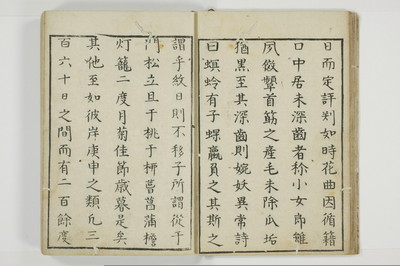 日而定評判如時花曲因循籍
口中居未深齒者徐小女郎雖
夙俶顰首筋之產毛未除瓜垢
猶黑至其深齒則婉妖異常詩
曰螟蛉有子蜾蠃負之其斯之
謂乎紋日則不移子所謂從于
門松立且于桃于柳菖蒲檐
灯籠二度月菊佳節歲暮是矣
其他至如彼岸庚申之類凡三
百六十日之間而有二百餘度